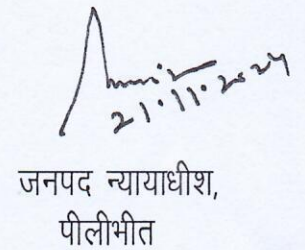 21.11.2024
जनपद न्यायाधीश,
पीलीभीत